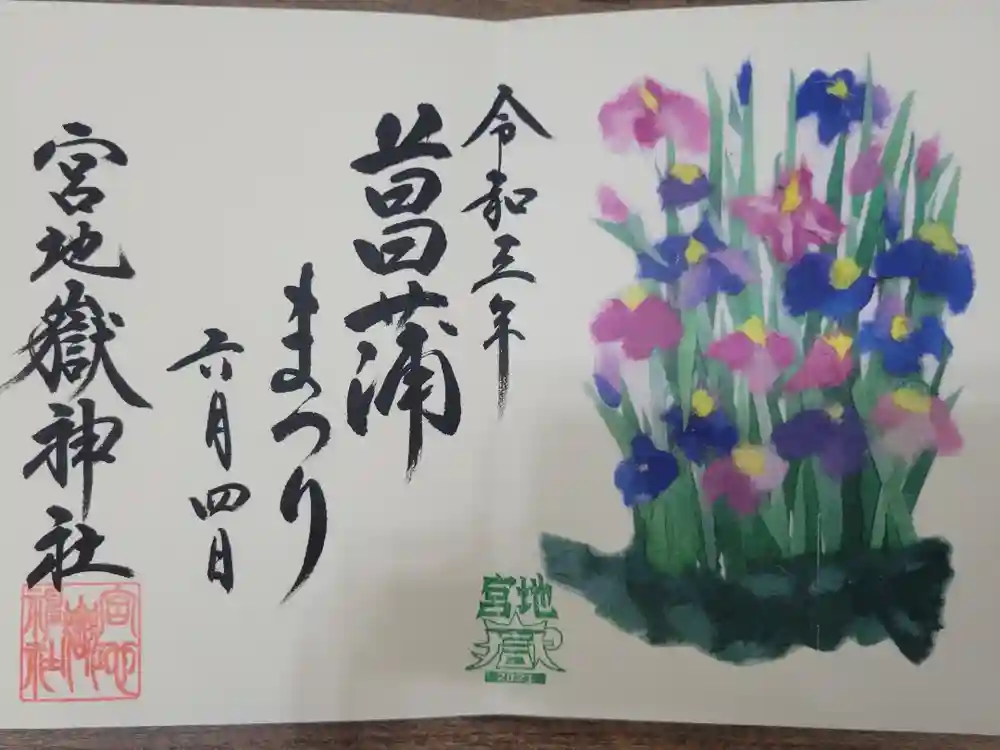 令和三年
菖蒲
まつり
六月四日
宮地嶽神社
宮地
嶽
2021
宮地
嶽
神社